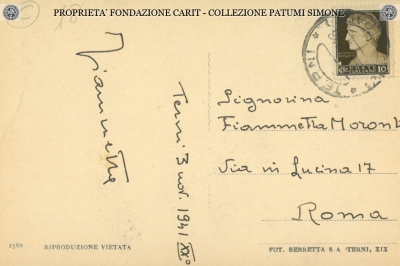 PROPRIETA' FONDAZIONE CARIT - COLLEZIONE PATUMI SIMONE
Terni 3 nov. 1941 XX°
10
TERNI
Signorina
Fiammetta Moronti
Via in Lucina 17
Roma
1560 RIPRODUZIONE VIETATA
FOT. BERRETTA S.A. TERNI, XIX